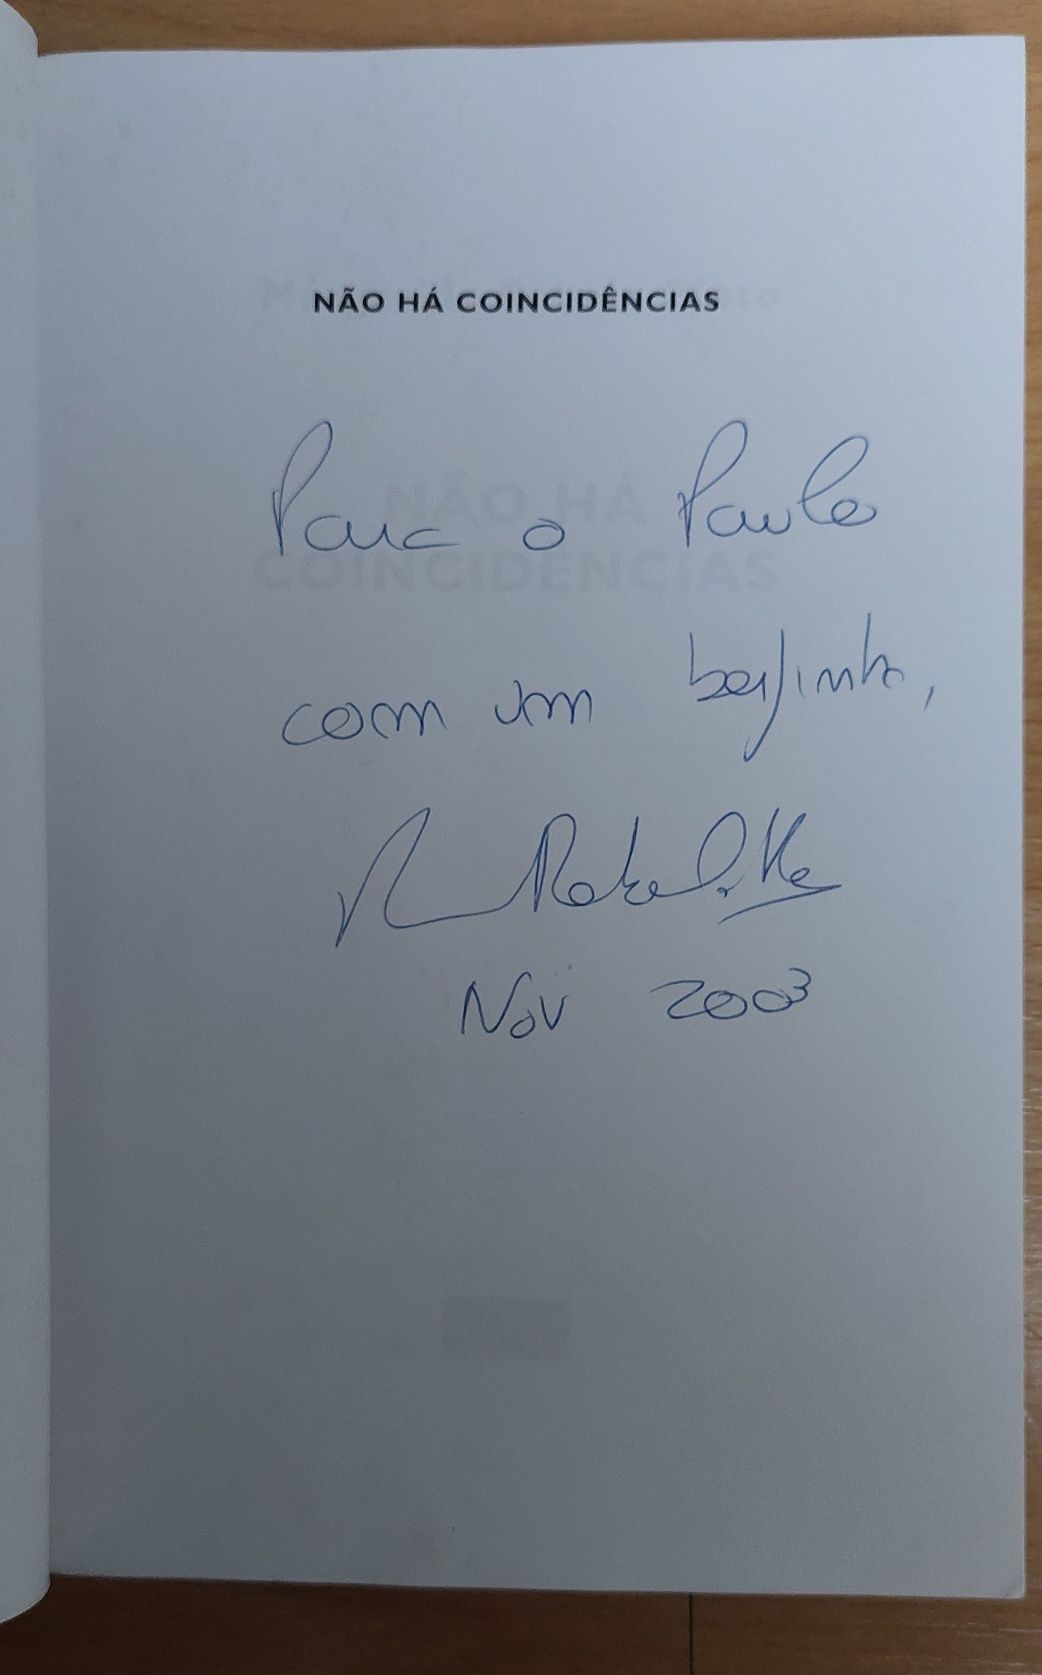 NÃO HÁ COINCIDÊNCIAS
Para o Paulo
com um beijinho,
Nov 2003